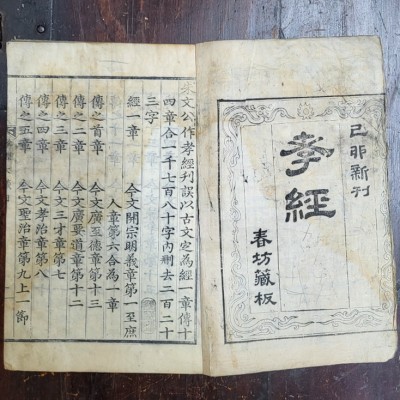 己卯新刊
孝經
春坊藏板
朱文公作孝經刊誤以古文定為經一章傳十
四章合一千七百八十字內刪去二百二十
三字
經一章 今文開宗明義章第一至庶
人章第六合為一章
傳之首章 今文廣至德章第十三
傳之二章 今文廣要道章第十二
傳之三章 今文三才章第七
傳之四章 今文孝治章第八
傳之五章 今文聖治章第九上一節